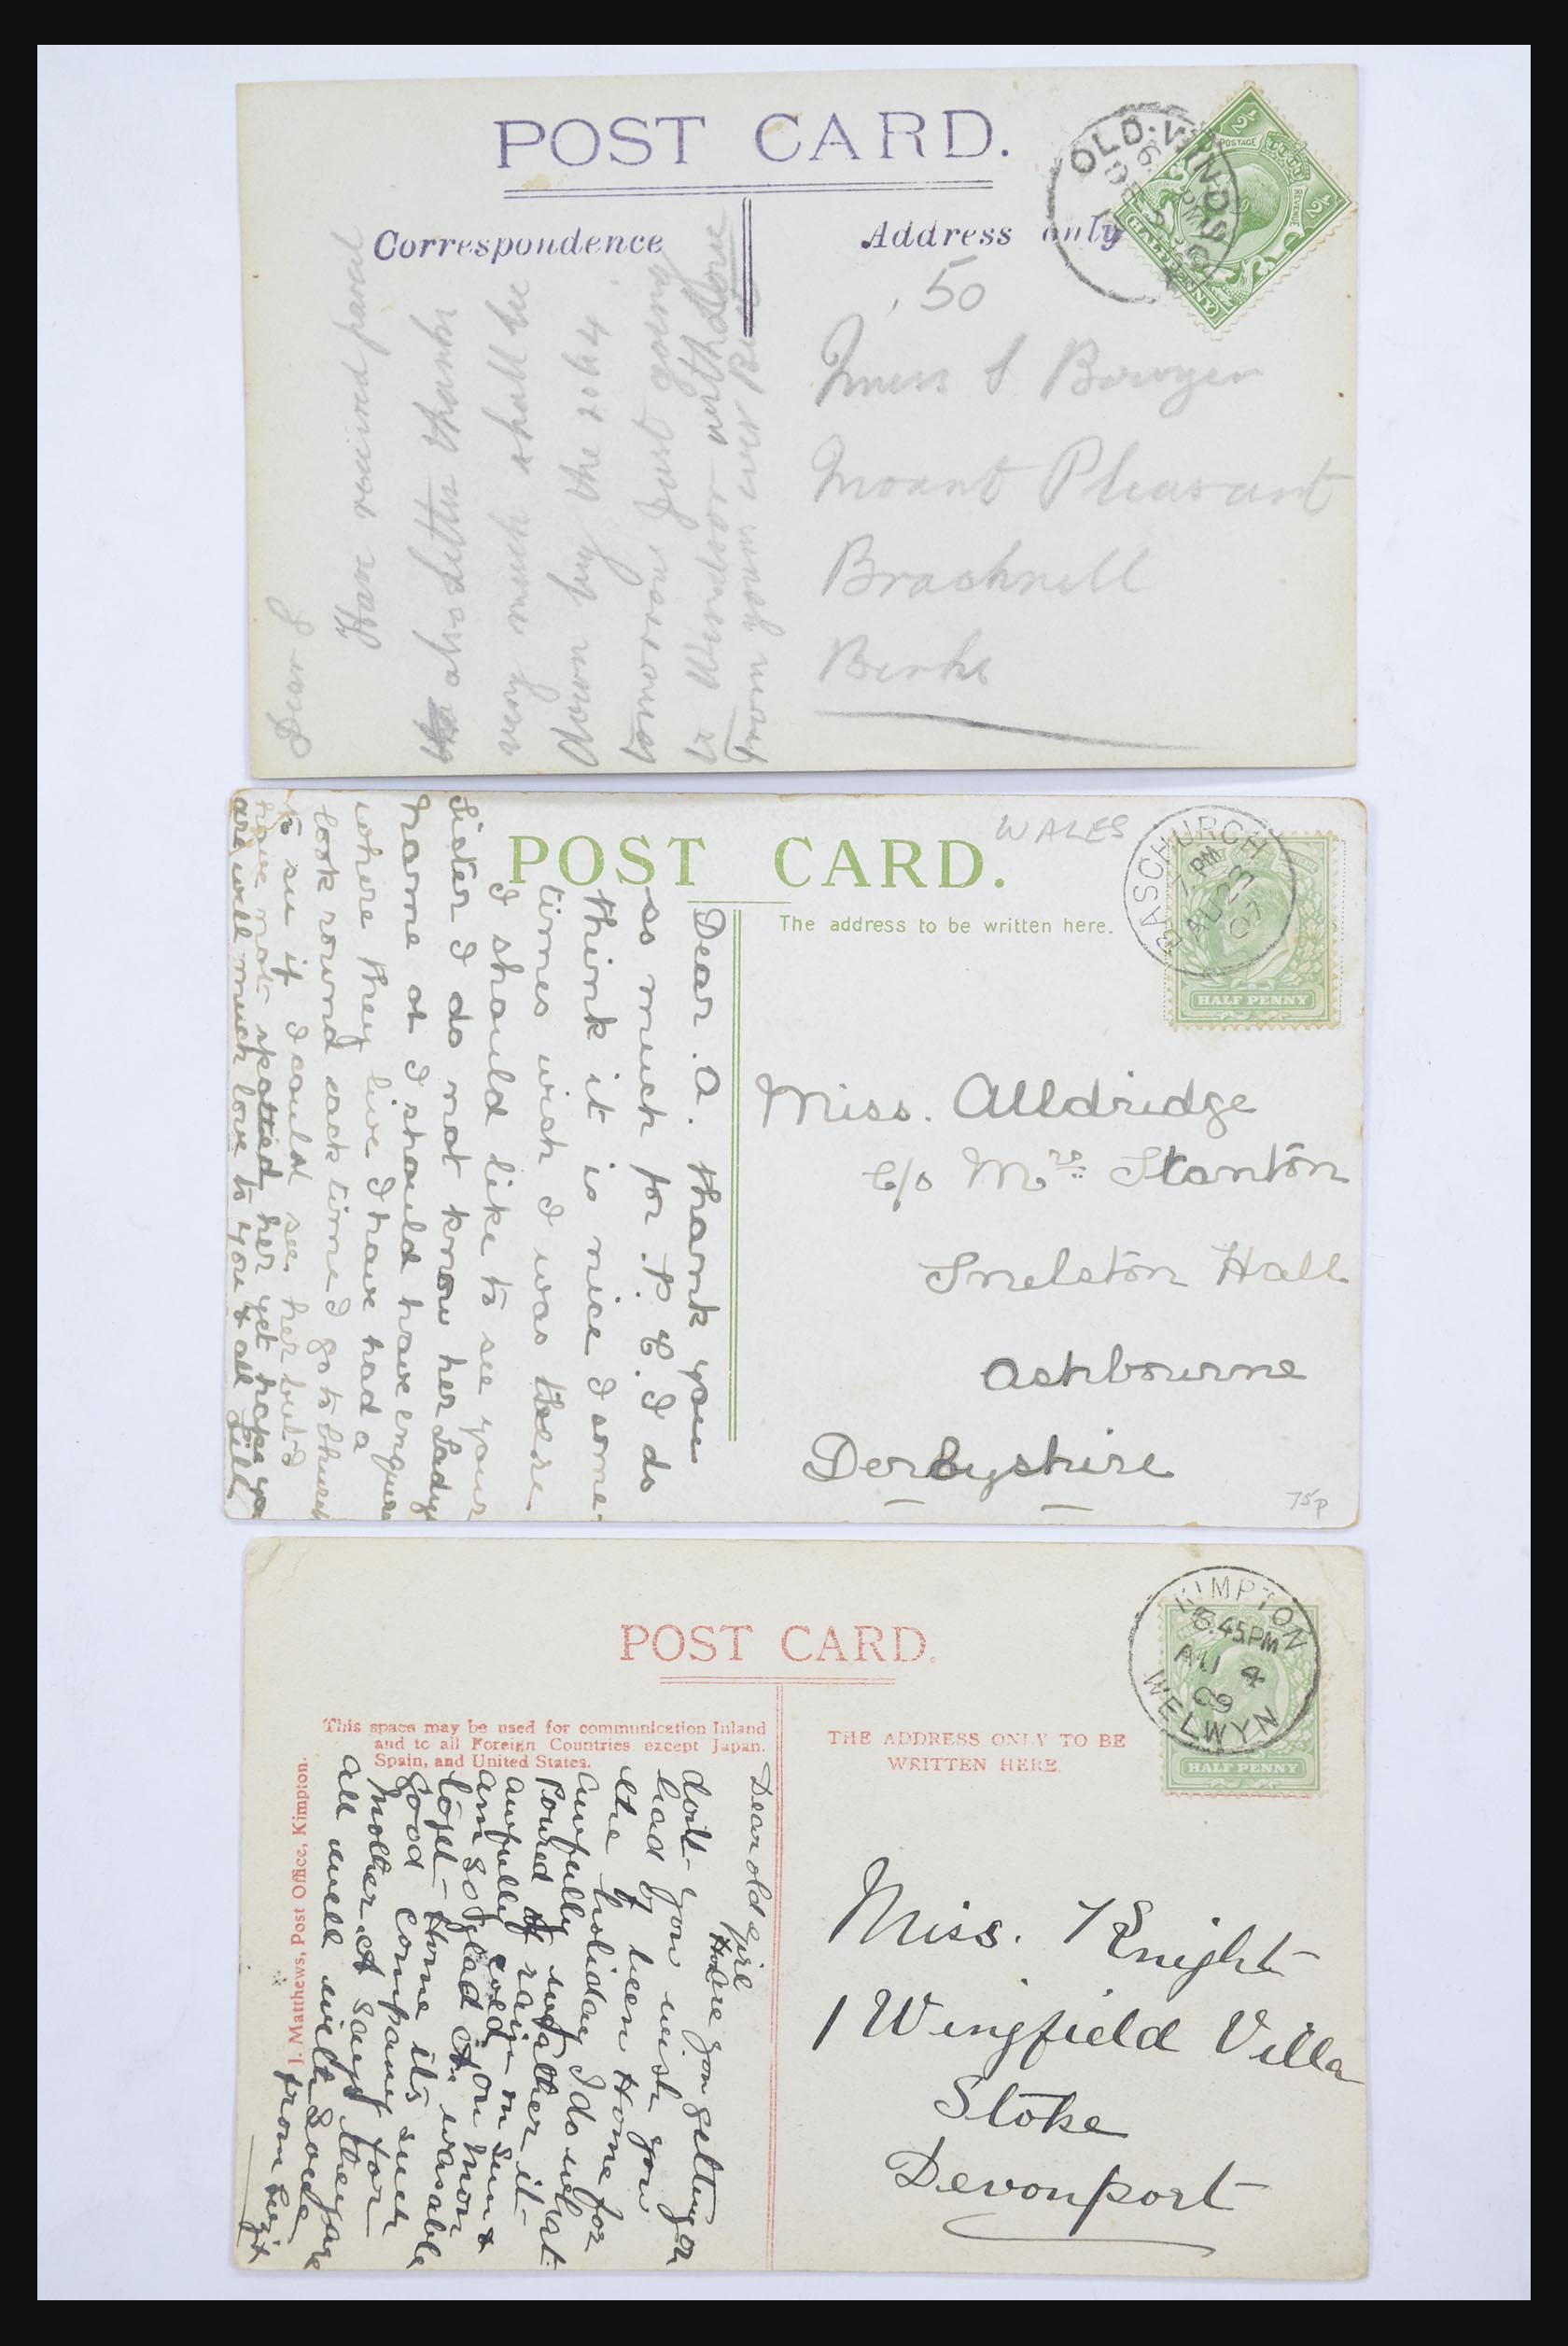 POST CARD.
Correspondence
Address only
OLD WINDSOR
6 PM
DE
HALFPENNY
POSTAGE
REVENUE
.50
Miss S. Bowyer
Mount Pleasant
Bracknell
Berks
Dear S
Have received parcel
also Letter thanks
very much shall be
down by the 20 to 4
tomorrow just going
to Windsor
from yours ever
POST CARD.
WALES
The address to be written here.
BASCHURCH
7 PM
AU 23
07
HALF PENNY
Miss. Alldridge
C/o Mrs Stanton
Snelston Hall
Ashbourne
Derbyshire
75p
Dear A. thank you
so much for P. C. I do
think it is nice I some-
times wish I was there
I should like to see your
Sister I do not know her Ladys
name or I should have enquired
where they live I have had a
look round each time I go to Church
to see if I could see her but I
have not spotted her yet hope you
are well much love to you & all Lill
POST CARD.
This space may be used for communication Inland
and to all Foreign Countries except Japan,
Spain, and United States.
THE ADDRESS ONLY TO BE
WRITTEN HERE.
KIMPTON
6.45PM
AU 4
09
WELWYN
HALF PENNY
J. Matthews, Post Office, Kimpton.
Miss. Knight
1 Wingfield Villa
Stoke
Devonport
Dear old girl
How are you getting on
don't you wish you
had been Home for
the holiday I do what
awfully weather it
Poured of rain on Sun &
awfully cold on Mon
am so glad you was able
to get Home its such
good company for
Mother. A says they are
all well with Love
from